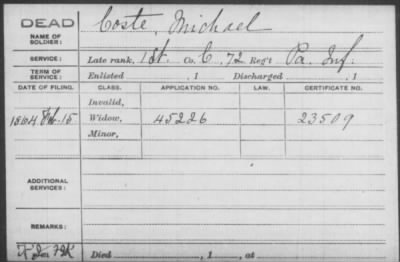 DEAD Coste, Michael
NAME OF SOLDIER:
SERVICE: Late rank, 1st. Co. C, 72 Reg't Pa. Inf.
TERM OF SERVICE: Enlisted , 1 Discharged , 1
DATE OF FILING. CLASS. APPLICATION NO. LAW. CERTIFICATE NO.
Invalid,
1864 Feb. 15 Widow, 45226 23509
Minor,
ADDITIONAL SERVICES:
REMARKS:
Died , 1 , at